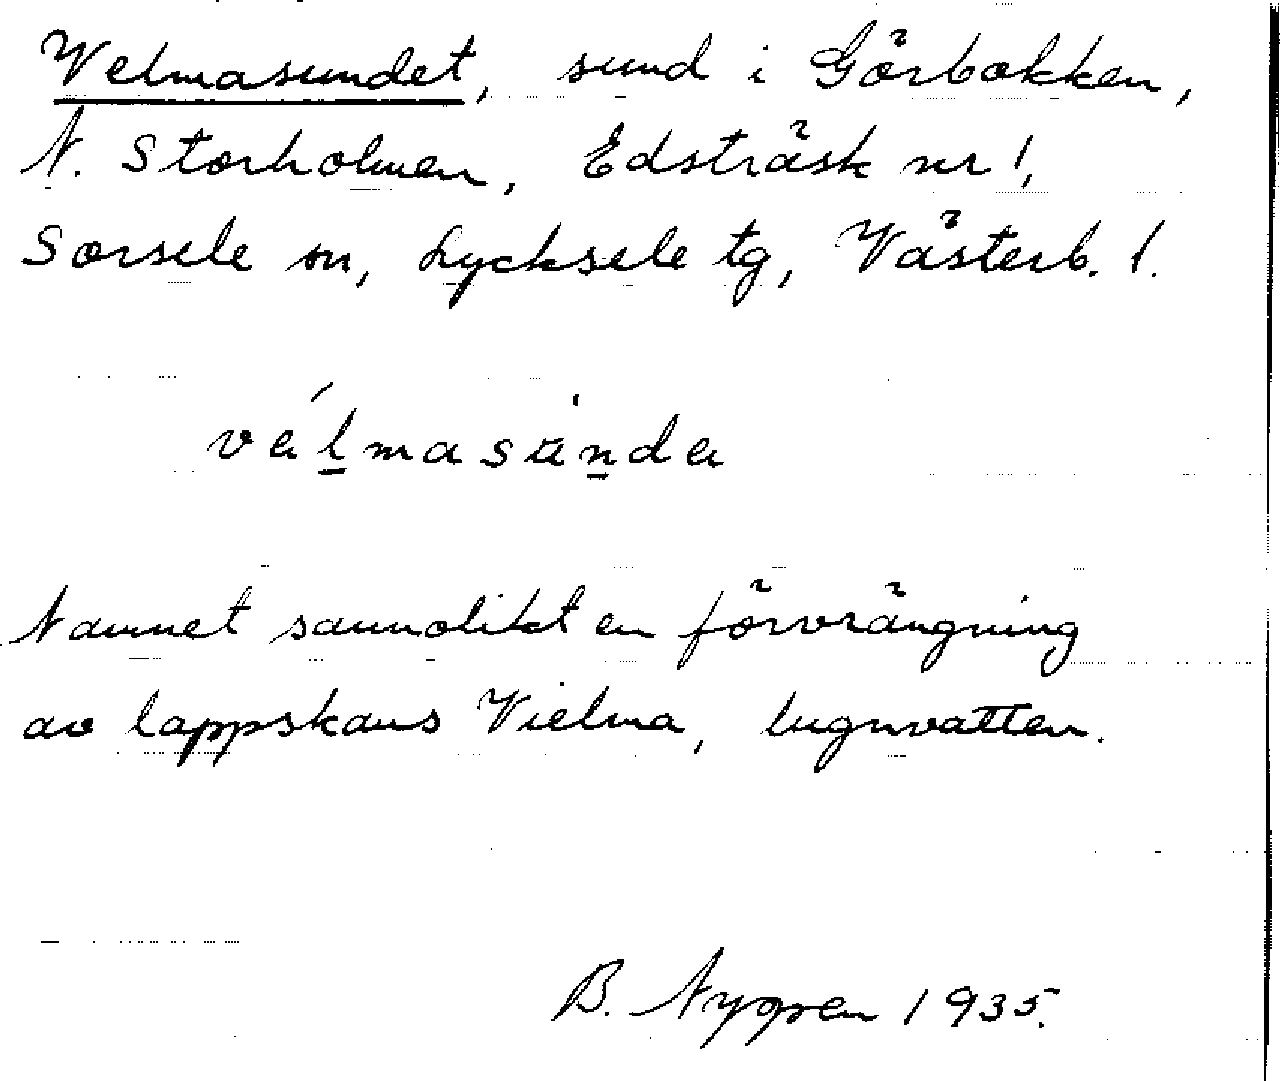 Velmasundet, sund i Görbäcken,
N. Storholmen, Edsträsk nr 1,
Sorsele sn, Lycksele tg, Västerb. l.
vélmasúndə
Namnet sannolikt en förvrängning
av lappskans Vielma, lugnvatten.
B. Nygren 1935.